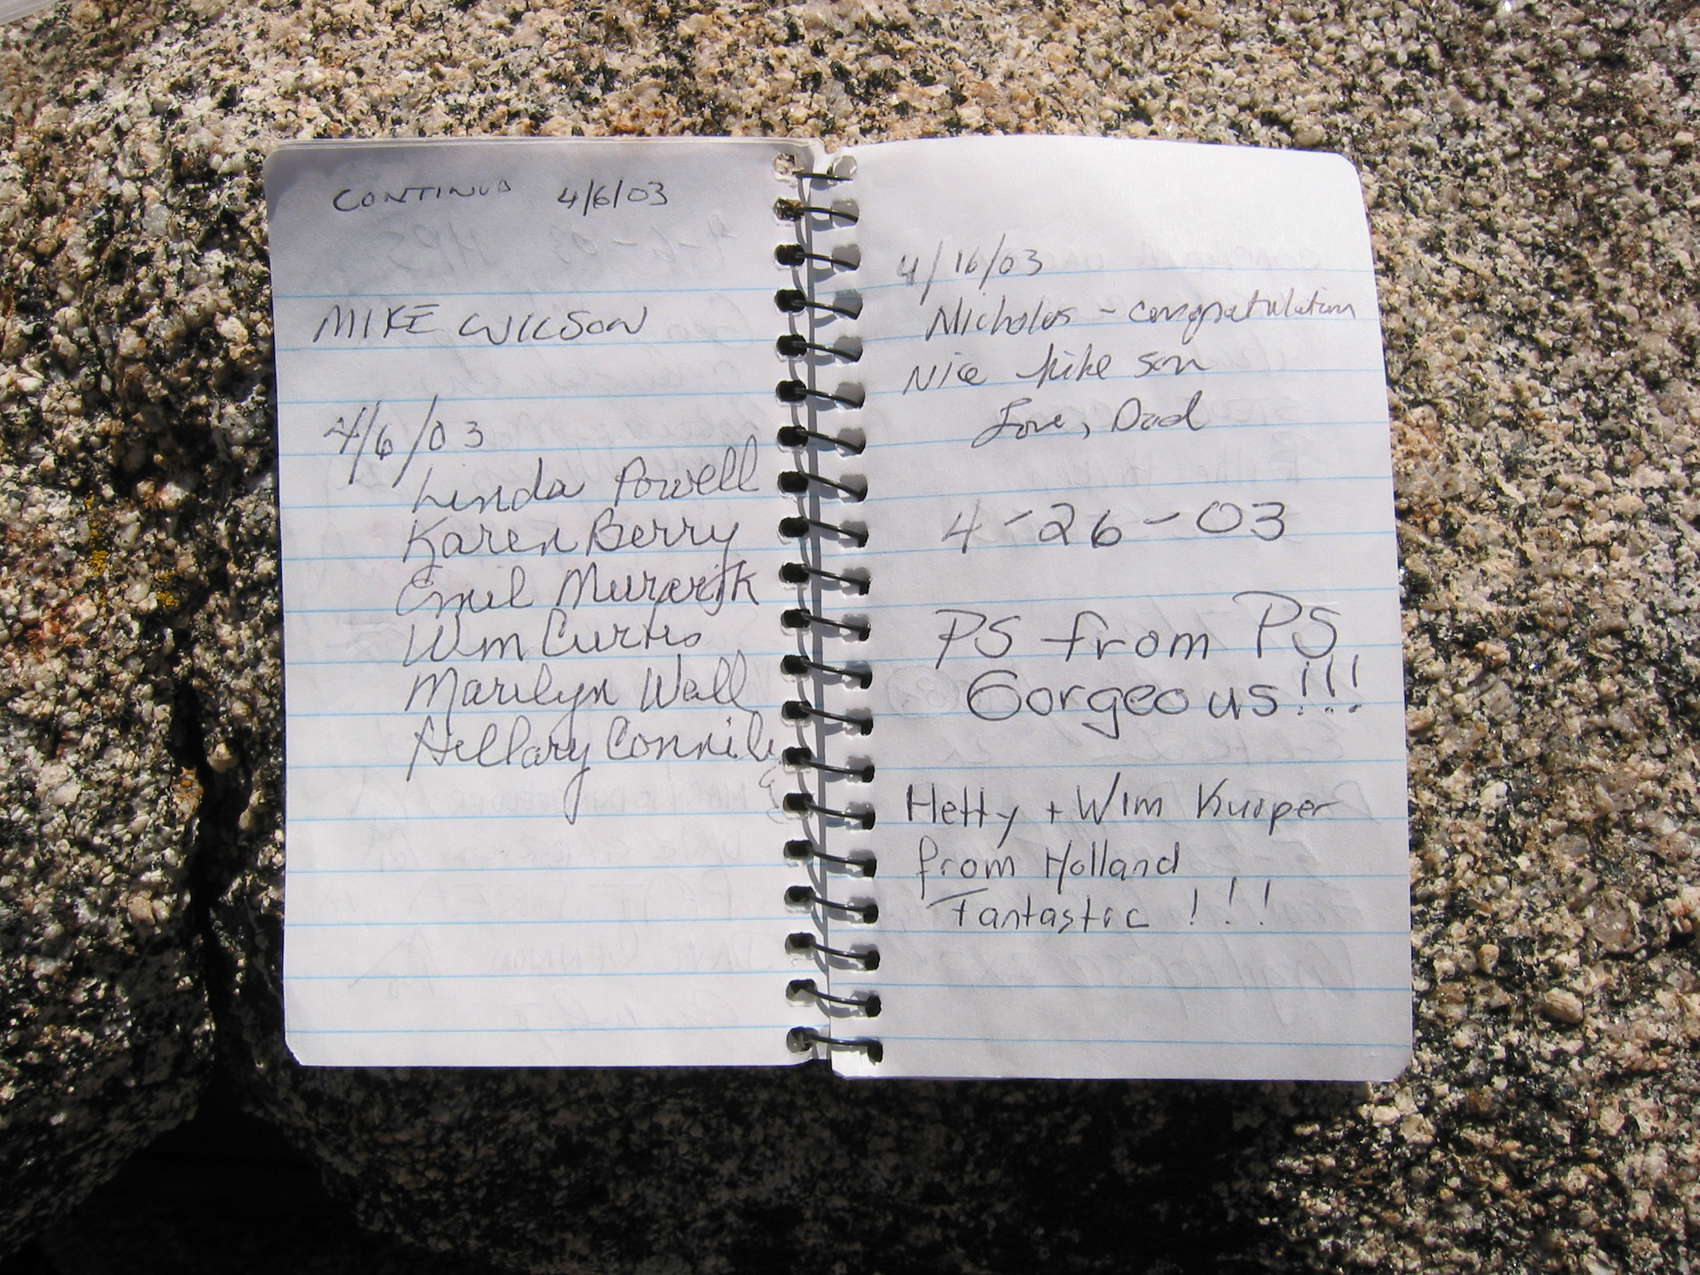 CONTINUD 4/6/03
MIKE WILSON
4/6/03
Linda Powell
Karen Berry
Emil
Wm Curtis
Marilyn Wall
Hillary
4/16/03
Nicholas - congratulation
Nice hike son
Love, Dad
4-26-03
PS from PS
Gorgeous!!!
Hetty + Wim Kuiper
from Holland
Fantastic !!!